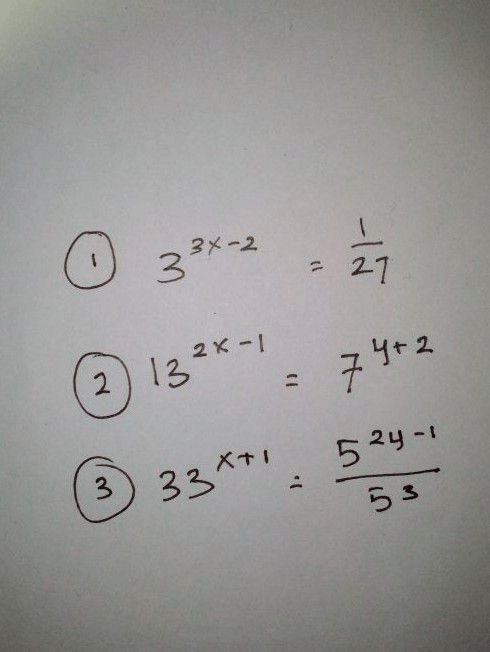 ① 3^{3x-2} = 1/27
② 13^{2x-1} = 7^{y+2}
③ 33^{x+1} = 5^{2y-1}/5^3